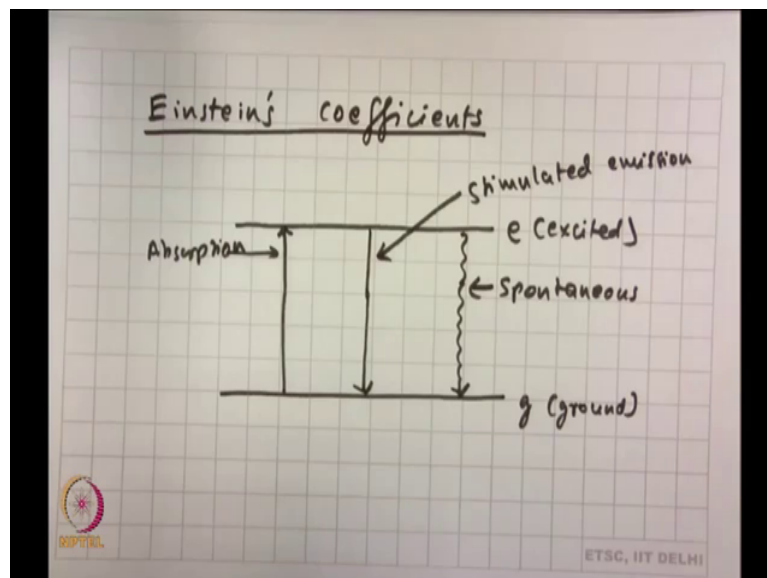 Einstein's coefficients
Stimulated emission
e (excited)
Absorption
Spontaneous
g (ground)
NPTEL
ETSC, IIT DELHI